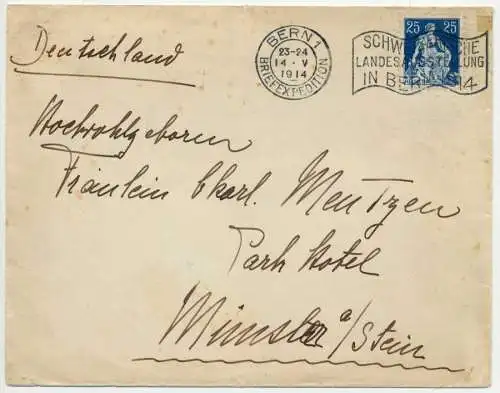 Deutschland
BERN 1
23-24
14 · V
1914
BRIEFEXPEDITION
SCHWEIZERISCHE
LANDESAUSSTELLUNG
IN BERN 1914
25 25
Hochwohlgeboren
Fräulein Charl. Mentzen
Park Hotel
Münster a/Stein